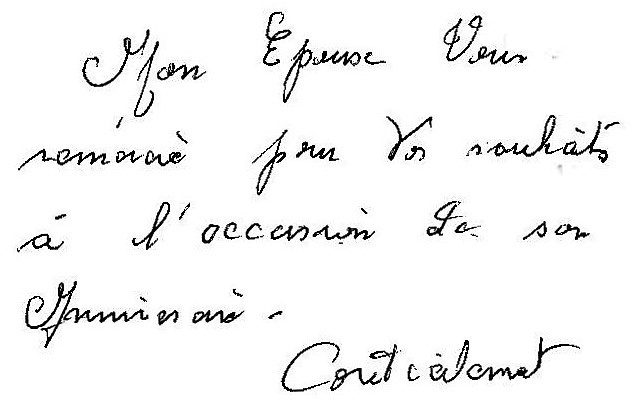 Mon Epouse Vous
remércié pour Vos souhâits
à l'occasion de son
Anniversaire.
Cordialement